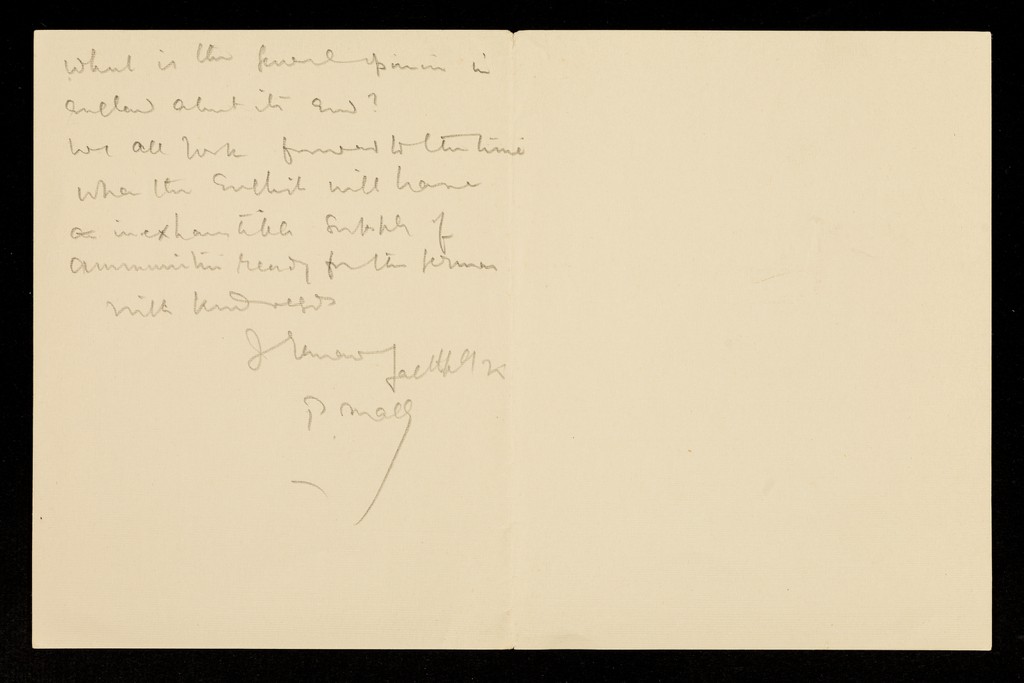 What is the general opinion in
England about its end?
We all look forward to the time
when the English will have
an inexhaustible supply of
ammunition ready for the Germans
with kind regards
I remain faithfully
P.